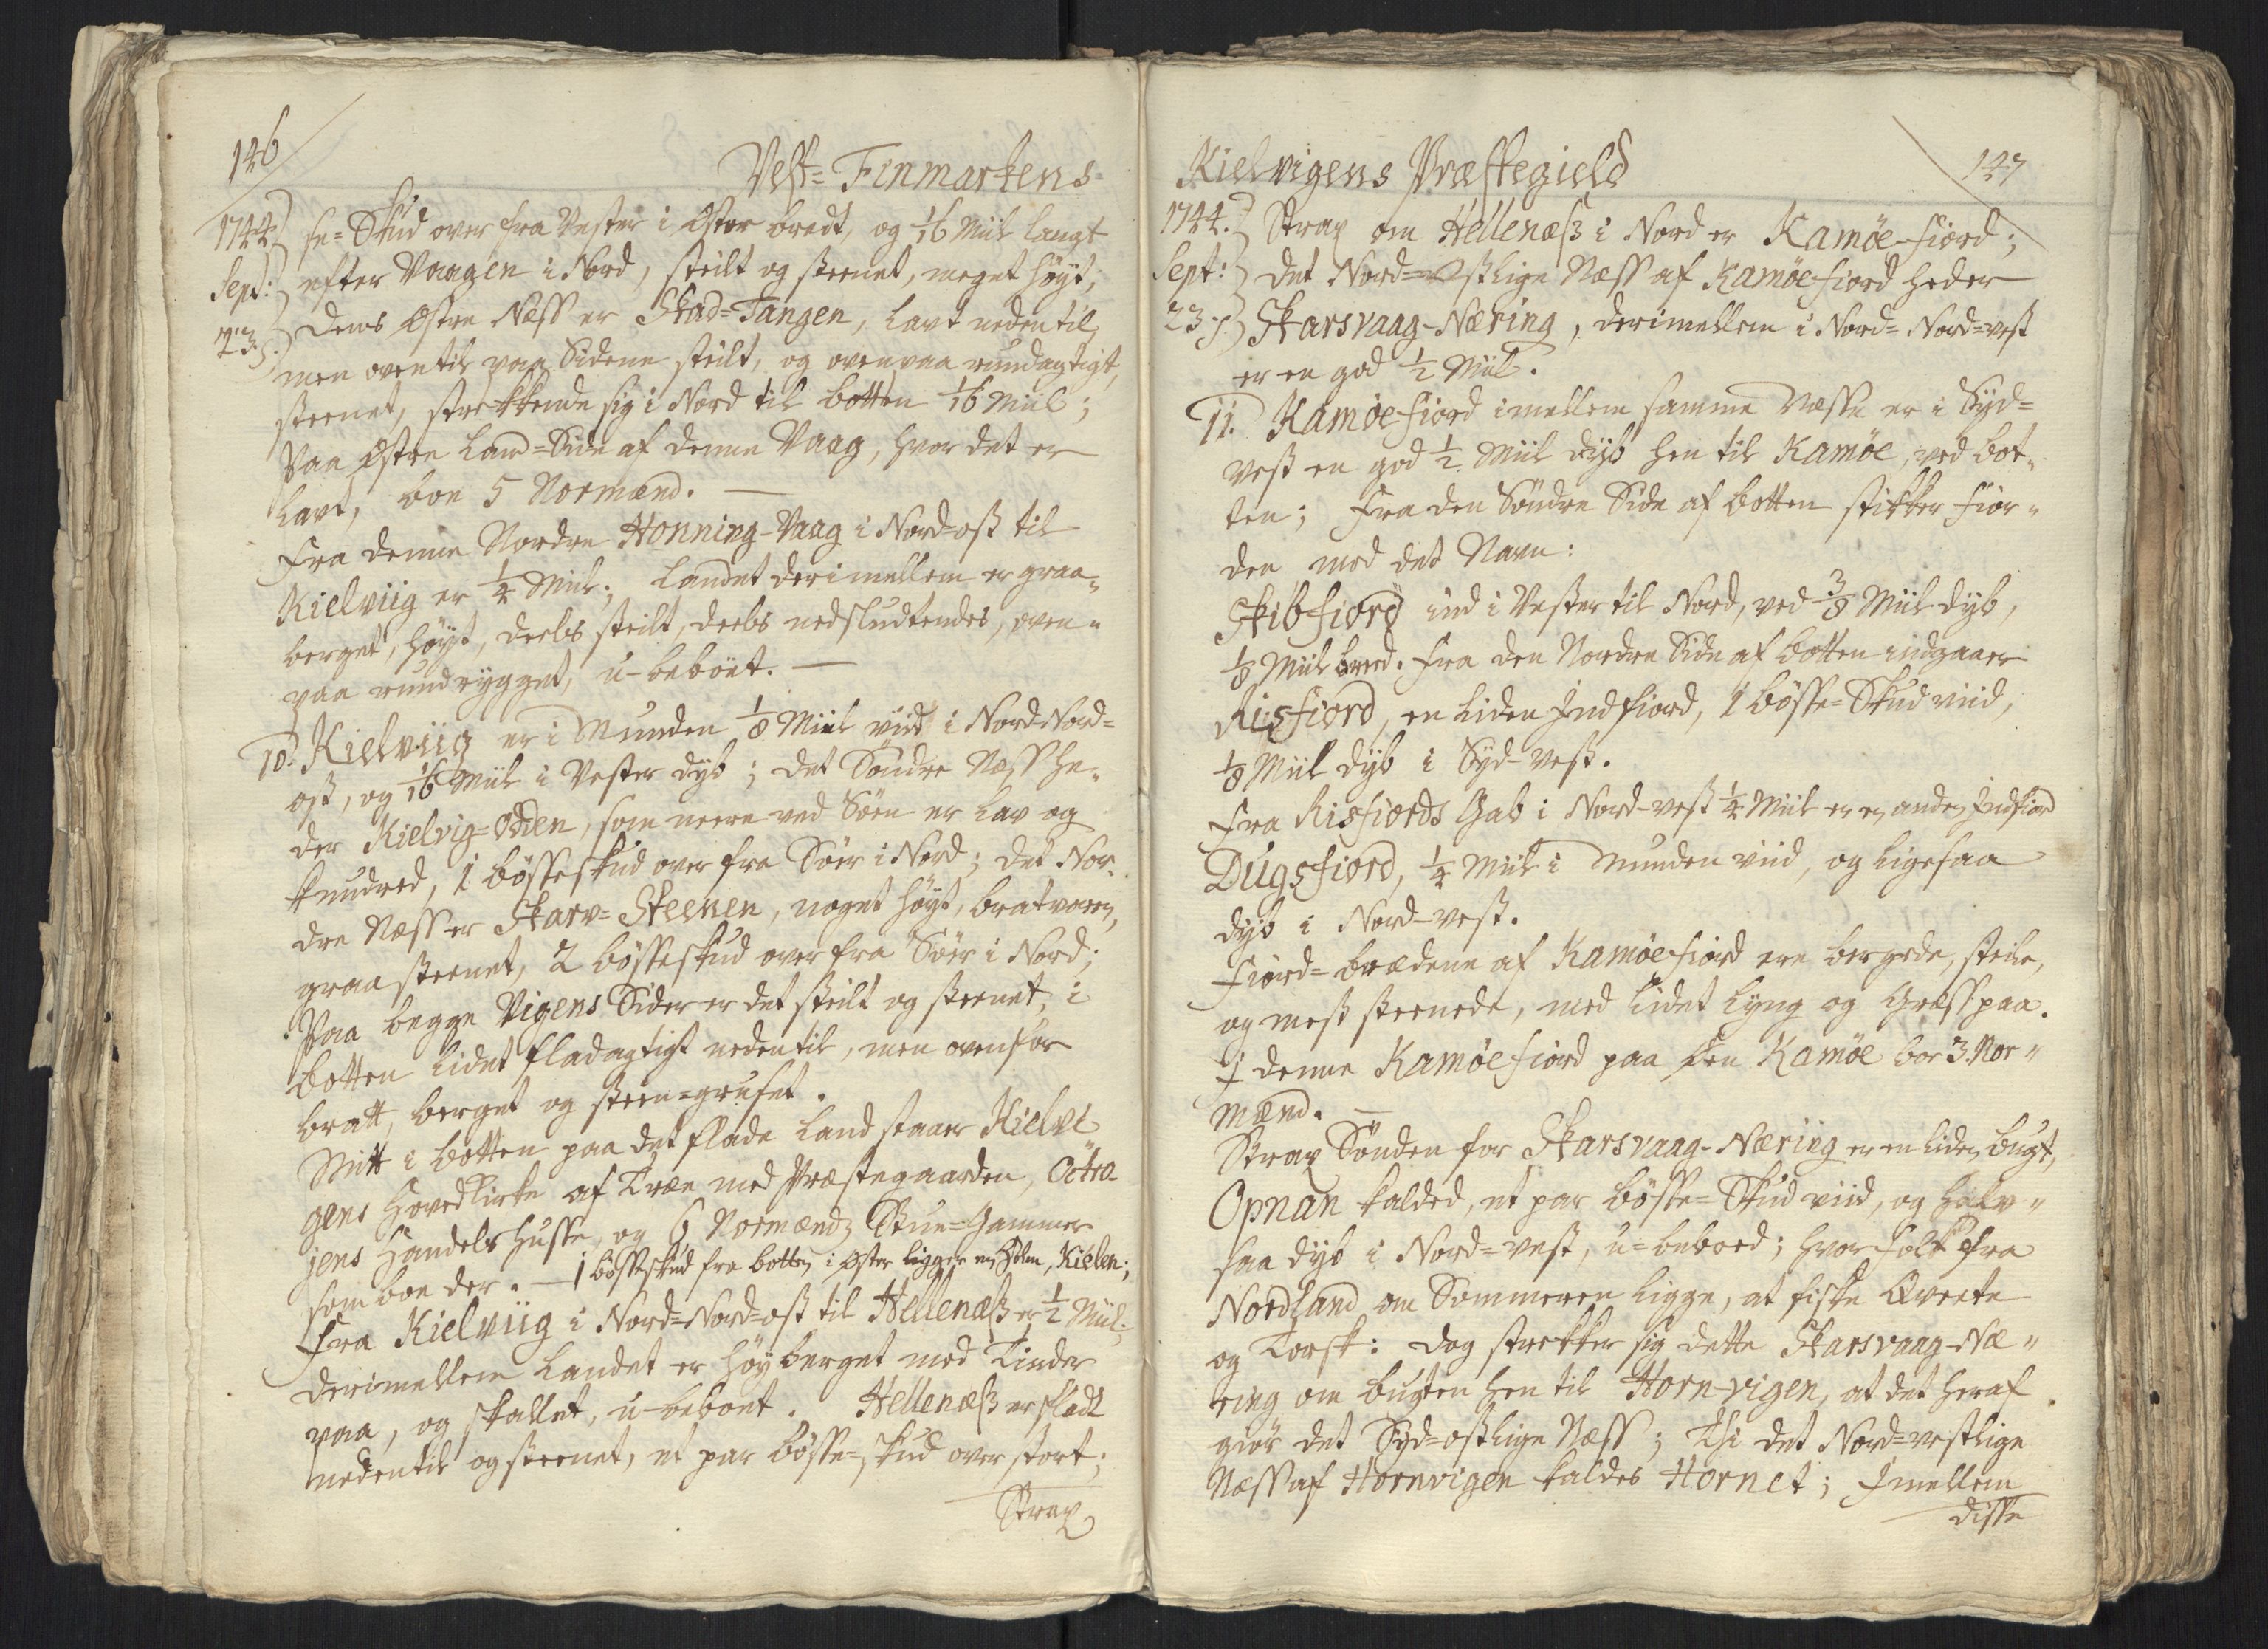 146
Vest-Finmarkens
1744. se-Skud over fra Vester i Øster bredt, og 1/16 Miil langt
Sept: efter Vaagen i Nord, steilt og steenet, meget høyt;
23. Dens Østre Næss er Stad-Tangen, lavt nedentil,
men oventil paa Sidene steilt, og ovenpaa rundagtigt,
steenet, strekkende sig i Nord til botten 1/16 Miil;
Paa Østre Land-Side af denne Vaag, hvor det er
lavt, boe 5 Normænd. —
Fra denne Nordre Honning-Vaag i Nord-ost til
Kielviig er 1/4 Miil; Landet derimellem er graa-
berget, høyt, deels steilt, deels nedsludtendes, oven-
paa rundrygget, u-beboet. —
10. Kielviig er i Munden 1/8 Miil viid i Nord-Nord-
ost, og 1/16 Miil i Vester dyb; det Søndre Næss he-
der Kielvig-Odden, som neere ved Søen er lav og
knudred, 1 bøsseskud over fra Søer i Nord; det Nor-
dre Næss er Skarv-Steenen, noget høyt, brat
graasteenet, 2 bøsseskud over fra Søer i Nord;
Paa begge Vigens Sider er det steilt og steenet, i
botten lidet fladagtigt nedentil, men ovenfor
bratt, berget og steen-gruset.
Mitt i botten paa det flade Land staaer Kielvi-
gens Hovedkirke af Træe med Præstegaarden, Octro-
jens Handels Husse, og 6 Normænds Stue-Gammer
som boe der. — 1 bøsseskud fra botten i Øster ligger en Holm, Kielen;
Fra Kielviig i Nord-Nord-ost til Hellenæß er 1/2 Miil;
derimellem Landet er høyberget med Tinder
paa, og skallet, u-beboet. Hellenæß er fladt
nedentil og steenet, et par bøsse-skud over stort;
Strax
Kielvigens Præstegield
147
1744. Strax om Hellenæß i Nord er Kamøe-fiord;
Sept: det Nord-Ostlige Næss af Kamøefiord heder
23. Skarsvaag-Næring, derimellem i Nord-Nord-vest
er en god 1/2 Miil.
11. Kamøe-fiord imellem samme Næsse er i Syd-
vest en god 1/2 Miil dyb hen til Kamøe, ved bot-
ten; Fra den Søndre Side af botten stikker Fior-
den med det Navn:
Skibfiord ind i Vester til Nord, ved 3/8 Miil dyb,
1/8 Miil breed. Fra den Nordre Side af botten indgaaer
Risfiord, en liden Indfiord, 1 bøsse-Skud viid,
1/8 Miil dyb i Syd-vest.
Fra Risfiords Gab i Nord-vest 1/4 Miil er en anden Indfiord
Dugsfiord, 1/4 Miil i Munden viid, og ligesaa
dyb i Nord-vest.
Fiord-bredene af Kamøefiord ere bergede, steile,
og mest steenede, med lidet Lyng og Græss paa.
I denne Kamøefiord paa Øen Kamøe bor 3 Nor-
mænd. —
Strax Sønden for Skarsvaag-Næriing er en liden bugt,
Opnan kalded, et par bøsse-Skud viid, og halv-
saa dyb i Nord-vest, u-beboed; hvor folk fra
Nordland om Sommeren ligge, at fiske Qveete
og Torsk: dog strekker sig dette Skarsvaag-Næ-
ring om bugten hen til Horn-vigen, at det heraf
giør det Syd-ostlige Næss; Thi det Nord-vestlige
Næss af Hornvigen kaldes Hornet; Imellem
disse